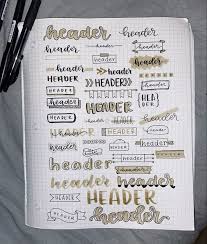 header header
header header header
header header header
header header header
HEADER HEADER HEADER
HEADER HEADER HEADER
HEADER HEADER HEADER
HEADER HEADER HEADER
HEADER HEADER header
header HEADER HEADER
header header header
HEADER HEADER
HEADER header